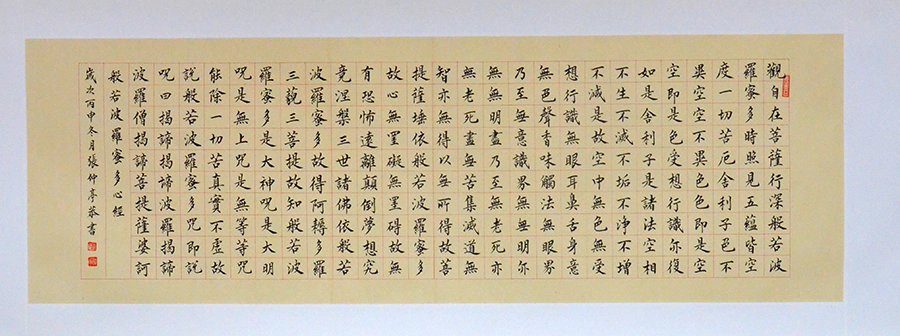 觀自在菩薩行深般若波
羅蜜多時照見五蘊皆空
度一切苦厄舍利子色不
異空空不異色色即是空
空即是色受想行識亦復
如是舍利子是諸法空相
不生不滅不垢不淨不增
不減是故空中無色無受
想行識無眼耳鼻舌身意
無色聲香味觸法無眼界
乃至無意識界無無明亦
無無明盡乃至無老死亦
無老死盡無苦集滅道無
智亦無得以無所得故菩
提薩埵依般若波羅蜜多
故心無罣礙無罣碍故無
有恐怖遠離顛倒夢想究
竟涅槃三世諸佛依般若
波羅蜜多故得阿耨多羅
三藐三菩提故知般若波
羅蜜多是大神呪是大明
呪是無上呪是無等等呪
能除一切苦真實不虛故
說般若波羅蜜多呪即說
呪曰揭諦揭諦波羅揭諦
波羅僧揭諦菩提薩婆訶
般若波羅蜜多心經
歲次丙申冬月張仲亭恭書